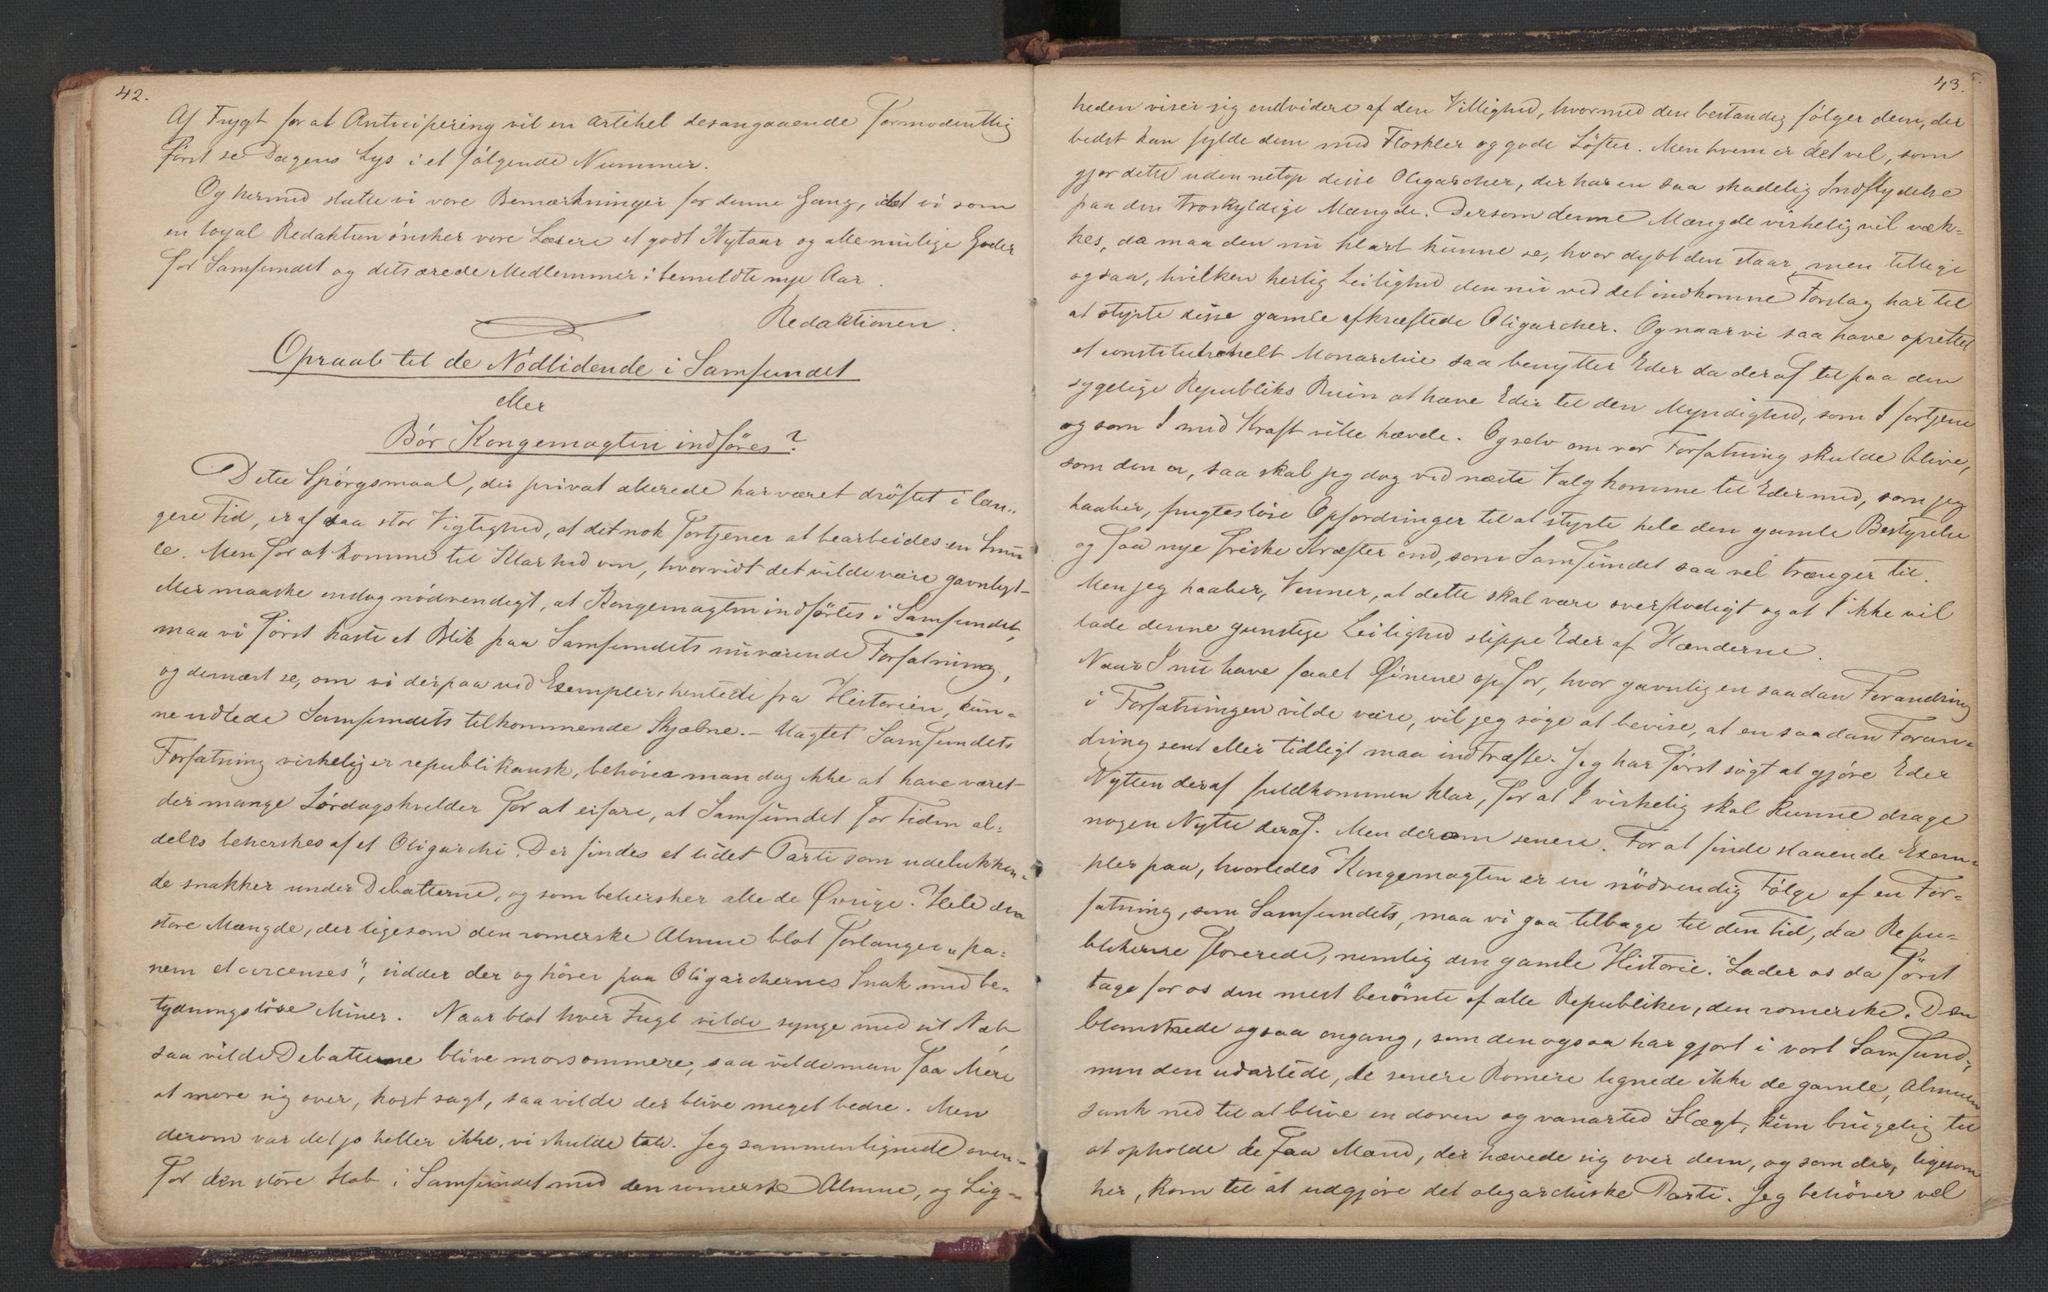 42.
Af Frygt for at Anticipering vil en Artikel desangaaende Formodentlig
først se Dagens Lys i et følgende Nummer.
Og hermed slutte vi vore Bemærkninger for denne Gang, idet vi som
en loyal Redaktion ønsker vore Læsere et godt Nytaar og alle mulige Goder
for Samfundet og dets ærede Medlemmer i bemeldte nye Aar.
Redaktionen.
Opraab til de Nødlidende i Samfundet
eller
Bør Kongemagten indføres?
Dette Spørgsmaal, der privat allerede har været drøftet i læn-
gere Tid, er af saa stor Vigtighed, at det nok fortjener at bearbeides en Smu
le. Men for at komme til Klarhed om, hvorvidt det vilde være gavnligt -
eller maaske endog nødvendigt, at Kongemagten indførtes i Samfundet,
maa vi først kaste et Blik paa Samfundets nuværende Forfatning,
og dernæst se, om vi derpaa ved Exempler, hentede fra Historien, kun-
ne udlede Samfundets tilkommende Skjæbne. - Uagtet Samfundets
Forfatning virkelig er republikansk, behøver man dog ikke at have været
der mange Lørdagskvelder for at erfare, at Samfundet for Tiden al-
deles beherskes af et Oligarchi. Der findes et lidet Parti som udelukken-
de snakker under Debatterne, og som behersker alle de Øvrige. Hele den
store Mængde, der ligesom den romerske Almue blot forlanger „pa-
nem et circenses", sidder der og hører paa Oligarchernes Snak med be-
tydningsløse Miner. Naar blot hver Fugl vilde synge med sit Næb
saa vilde Debatterne blive morsommere, saa vilde man faa Mere
at more sig over, kort sagt, saa vilde der blive meget bedre. Men
derom var det jo heller ikke, vi skulde tale. Jeg sammenlignede oven-
for den store Hob i Samfundet med den romerske Almue, og Lig-
43.
heden viser sig endvidere af den Villighed, hvormed den bestandig følger dem, der
bedst kan fylde dem med Floskler og gode Løfter. Men hvem er det vel, som
gjør dette uden netop disse Oligarcher, der har en saa skadelig Indflydelse
paa den troskyldige Mængde. Dersom denne Mængde virkelig vil væk-
kes, da maa den nu klart kunne se, hvor dybt den staar, men tillige
ogsaa, hvilken herlig Leilighed den nu ved det indkomne Forslag har til
at styrte disse gamle afkræftede Oligarcher. Og naar vi saa have oprettet
et constitutionelt Monarchie saa benytter Eder da deraf til paa den
sygelige Republiks Ruin at hæve Eder til den Myndighed, som I fortjene
og som I med Kraft ville hævde. Og selv om vor Forfatning skulde blive,
som den er, saa skal jeg dog ved næste Valg komme til Eder med, som jeg
haaber, frugtesløse Opfordringer til at styrte hele den gamle Bestyrelse
og faa nye friske Kræfter ind, som Samfundet saa vel trænger til.
Men jeg haaber, Venner, at dette skal være overflødigt og at I ikke vil
lade denne gunstige Leilighed slippe Eder af Hænderne.
Naar I nu have faaet Øinene op for, hvor gavnlig en saadan Forandring
i Forfatningen vilde være, vil jeg søge at bevise, at en saadan Foran-
dring sent eller tidligt maa indtræffe. Jeg har først søgt at gjøre Eder
Nytten deraf fuldkommen klar, for at I virkelig skal kunne drage
nogen Nytte deraf. Men derom senere. For at finde slaaende Exem-
pler paa, hvorledes Kongemagten er en nødvendig Følge af en For-
fatning, som Samfundets, maa vi gaa tilbage til den Tid, da Repu-
blikerne florerede, nemlig den gamle Historie. Lader os da først
tage for os den mest berømte af alle Republiker, den romerske. Den
blomstrede ogsaa engang, som den ogsaa har gjort i vort Samfund,
men den udartede, de senere Romere lignede ikke de gamle, Almuen
sank ned til at blive en doven og vanartet Slægt, kun brugelig til
at opholde de faa Mænd, der hævede sig over dem, og som der, ligesom
her, kom til at udgjøre det oligarchiske Parti. Jeg behøver vel